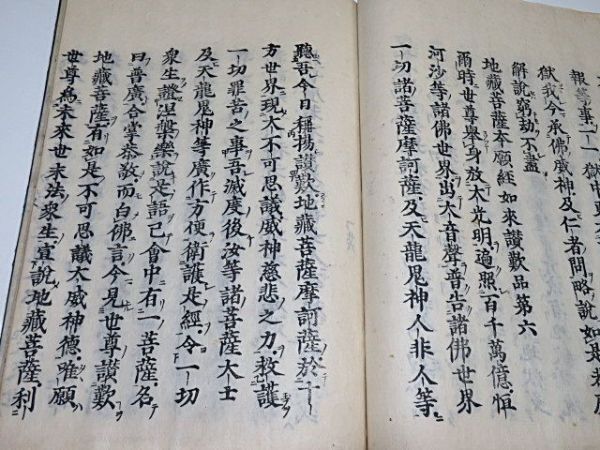 報等事一一獄中更
獄我今承佛威神及仁者問略說如是若
解說窮劫不盡
地藏菩薩本願經如來讚歎品第六
爾時世尊舉身放大光明遍照百千萬億恒
河沙等諸佛世界出大音聲普告諸佛世界
一切諸菩薩摩訶薩及天龍鬼神人非人等
聽吾今日稱揚讚歎地藏菩薩摩訶薩於十
方世界現大不可思議威神慈悲之力救護
一切罪苦之事吾滅度後汝等諸菩薩大士
及天龍鬼神等廣作方便衛護是經令一切
衆生證涅槃樂說是語已會中有一菩薩名
曰普廣合掌恭敬而白佛言今見世尊讚歎
地藏菩薩有如是不可思議大威神德唯願
世尊為未來世末法衆生宣說地藏菩薩利